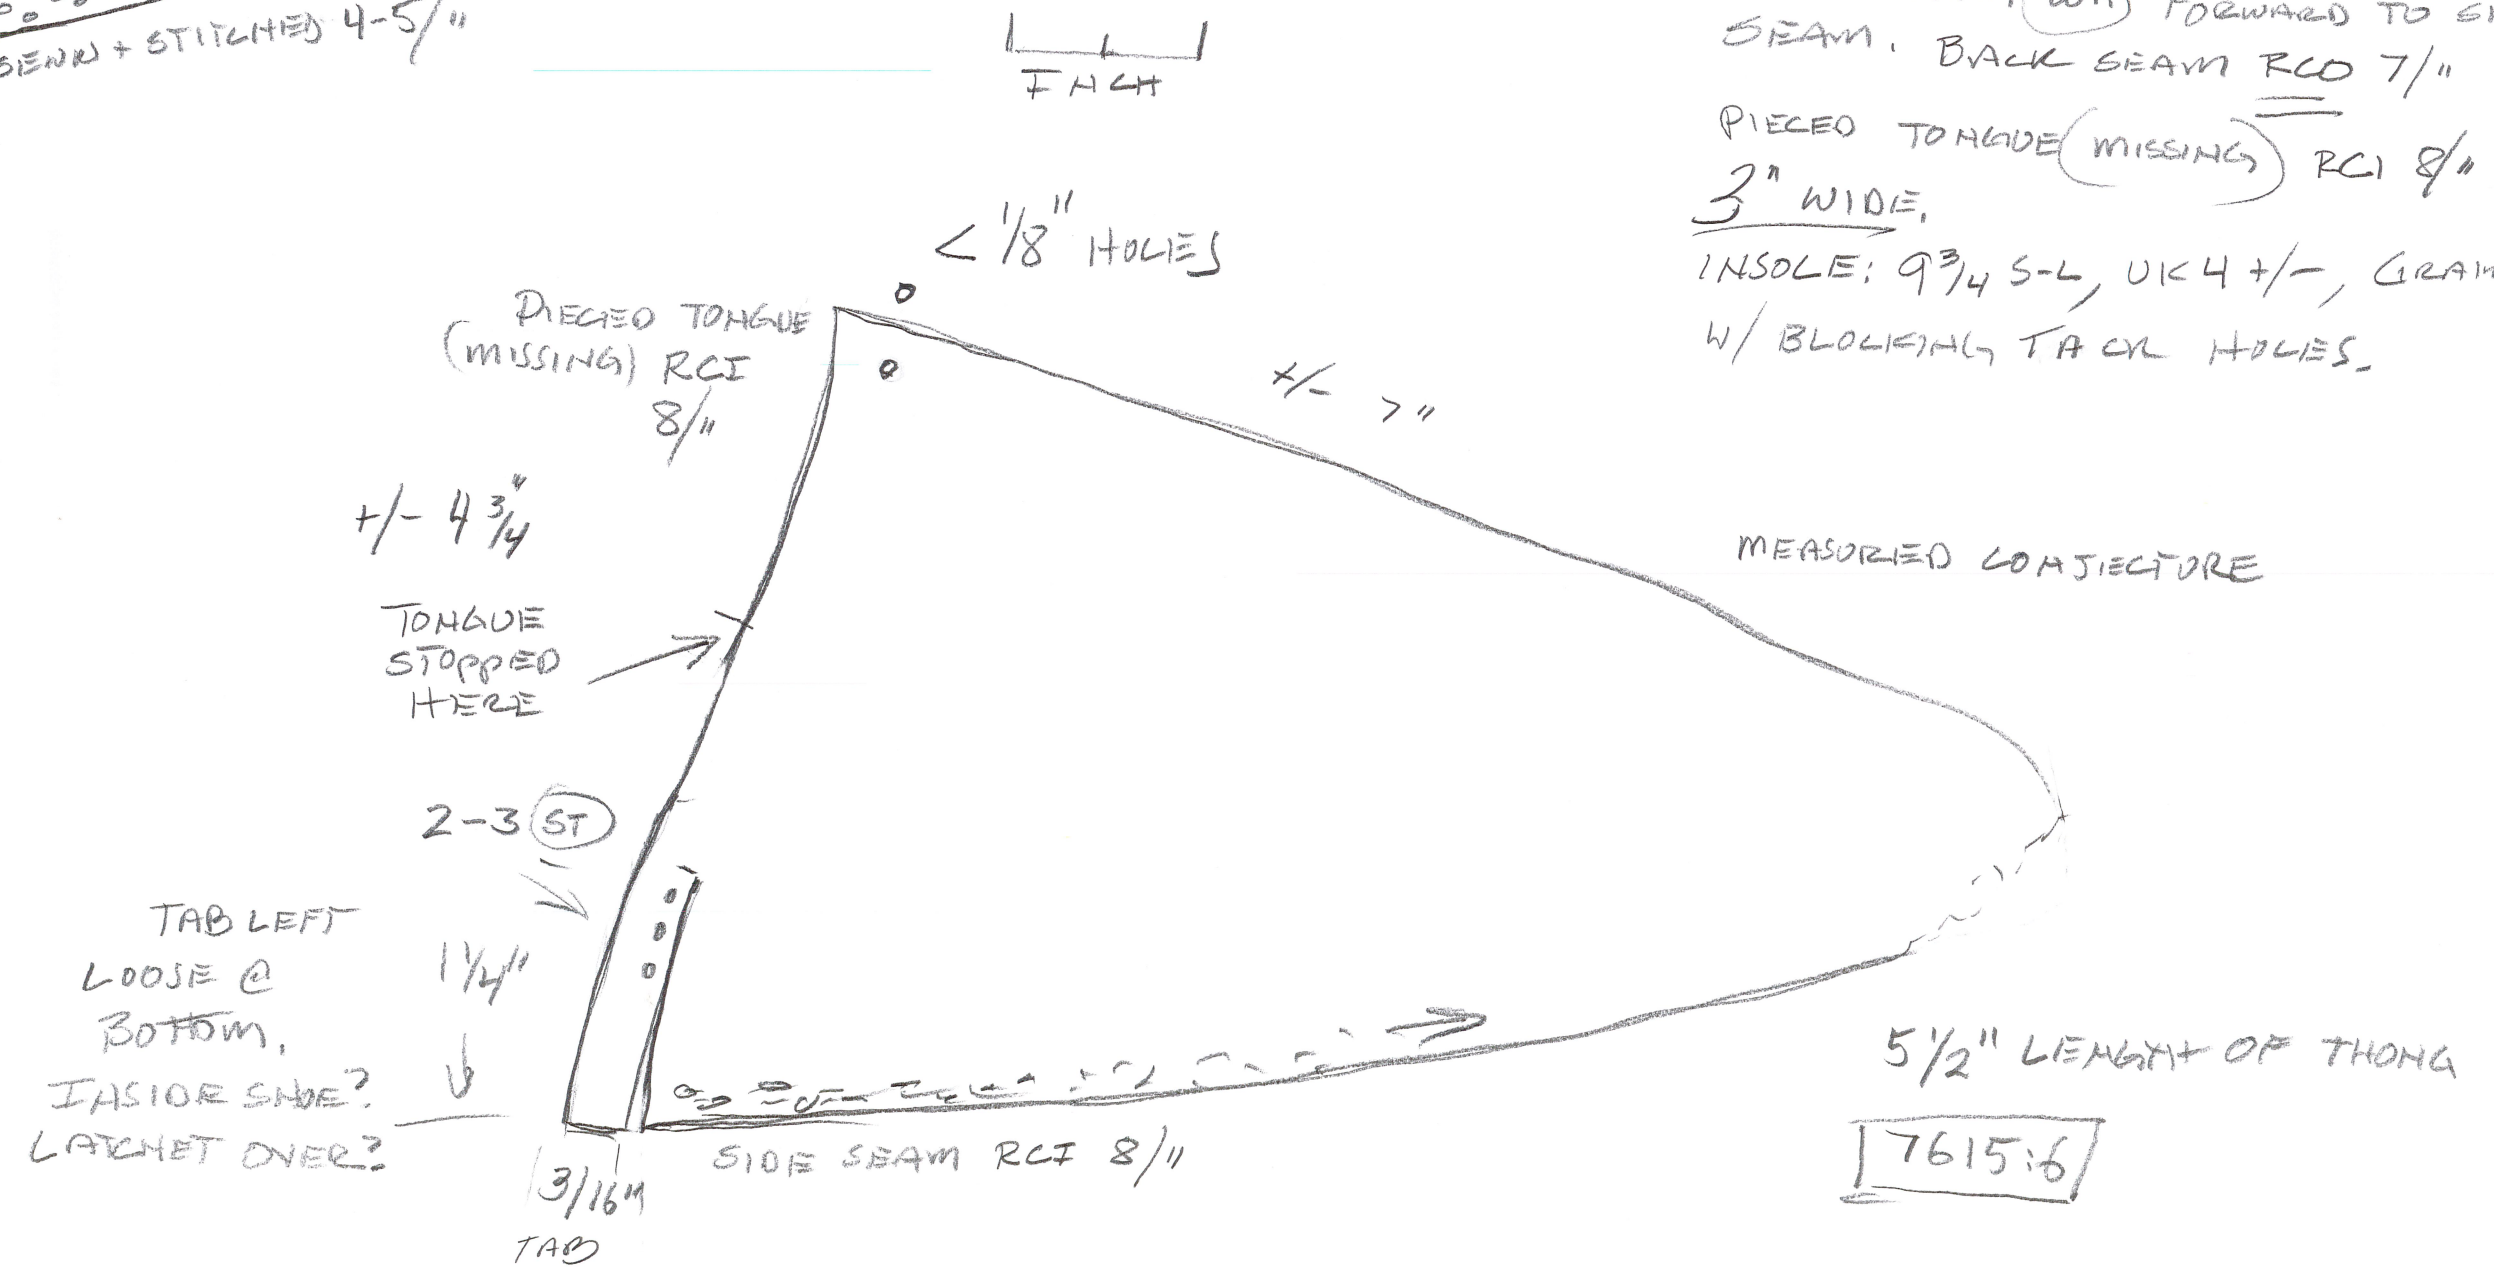 SEWN + STITCHED 4-5/"
INCH
FORWARD TO
SEAM. BACK SEAM RCO 7/"
PIECED TONGUE (MISSING) RCI 8/"
3" WIDE.
INSOLE: 9 3/4 S-L, UK 4 +/-, GRAIN
W/ BLOCKING TACK HOLES.
< 1/8" HOLES
PIECED TONGUE
(MISSING) RCI
8/"
+/- 7"
+/- 4 3/4"
MEASURED CONJECTURE
TONGUE
STOPPED
HERE
2-3 ST
TAB LEFT
LOOSE @
BOTTOM.
INSIDE SHOE?
LATCHET OVER?
1 1/4"
5 1/2" LENGTH OF THONG
7615:6
SIDE SEAM RCI 8/"
3/16"
TAB